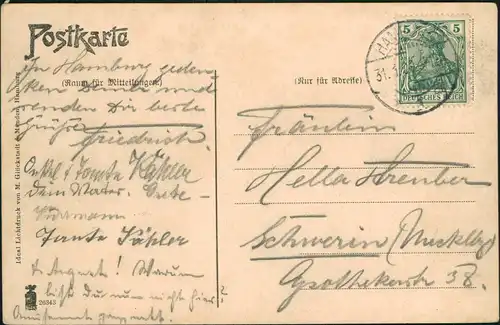 Postkarte
(Raum für Mitteilungen)
(Nur für Adresse)
5 5
DEUTSCHES REICH
HAM
31.
In Hamburg geden-
ken Deiner und
senden Dir beste
Grüße
Friedrich.
Onkel & Tante Kähler
dein Vater.
Tante Kähler
Warum
bist du nun nicht hier?
Fräulein
Hella Streuber
Schwerin (Mecklbg)
Apothekerstr 38.
Ideal Lichtdruck von M. Glückstadt & Münden, Hamburg
26343